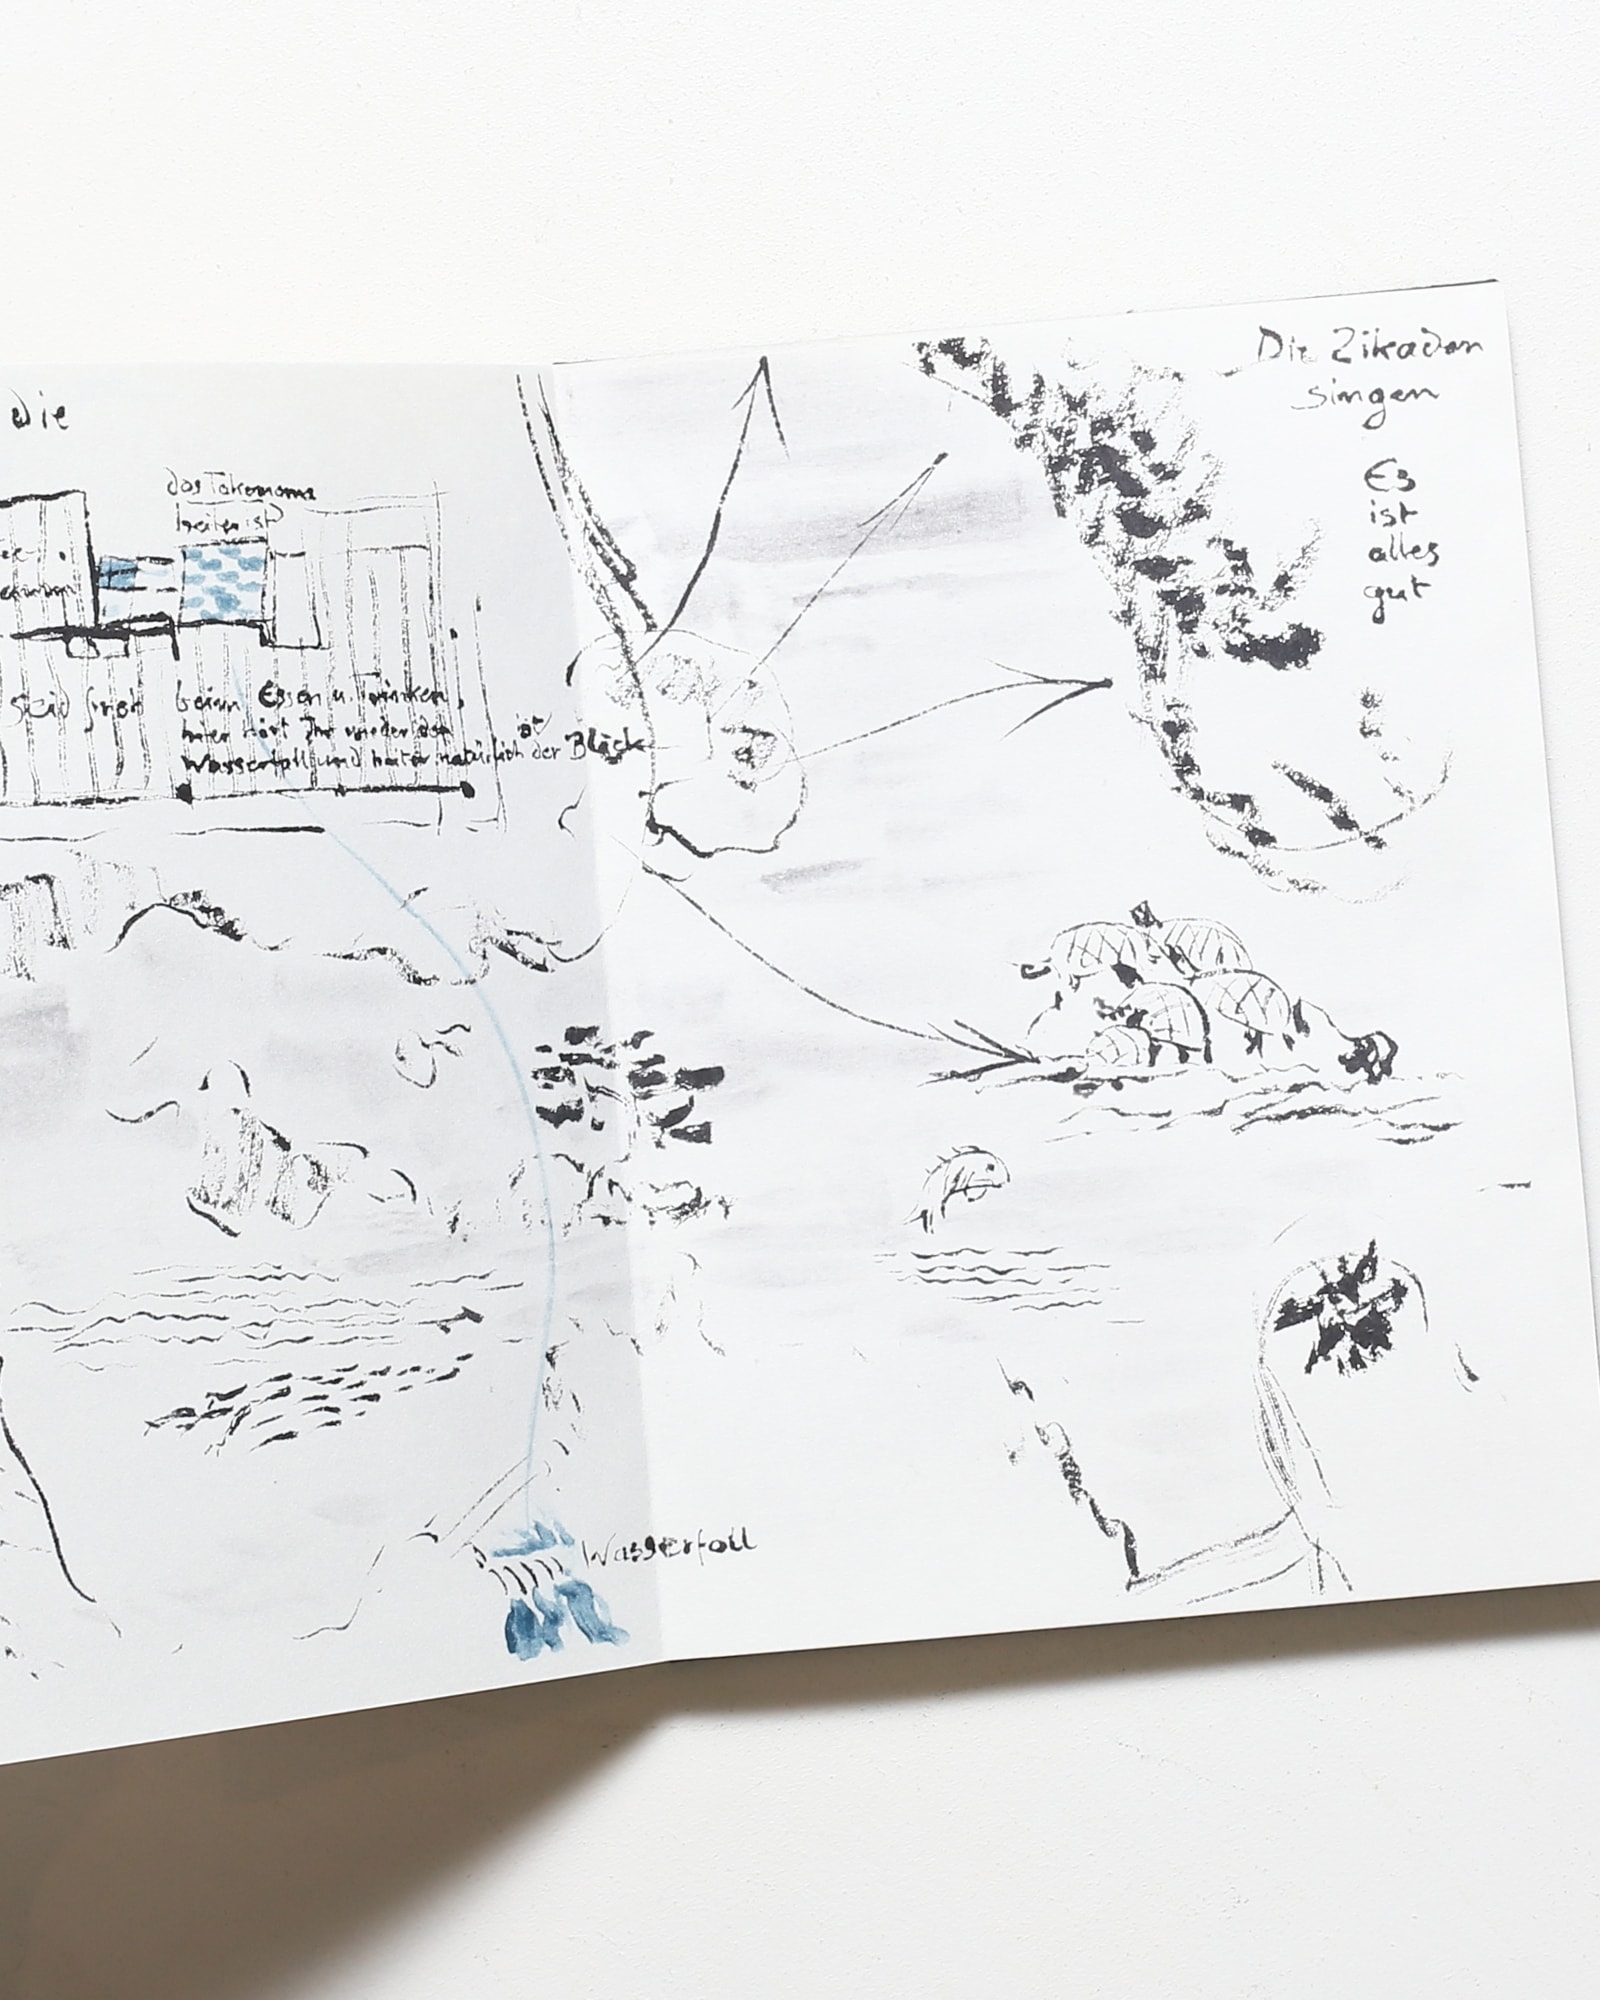 die
das Tokonoma
heiter ist
seid froh beim Essen u. Trinken,
hier hört Ihr wieder den
Wasserfall und heiter natürlich ist der Blick
Wasserfall
Die Zikaden
singen
Es
ist
alles
gut